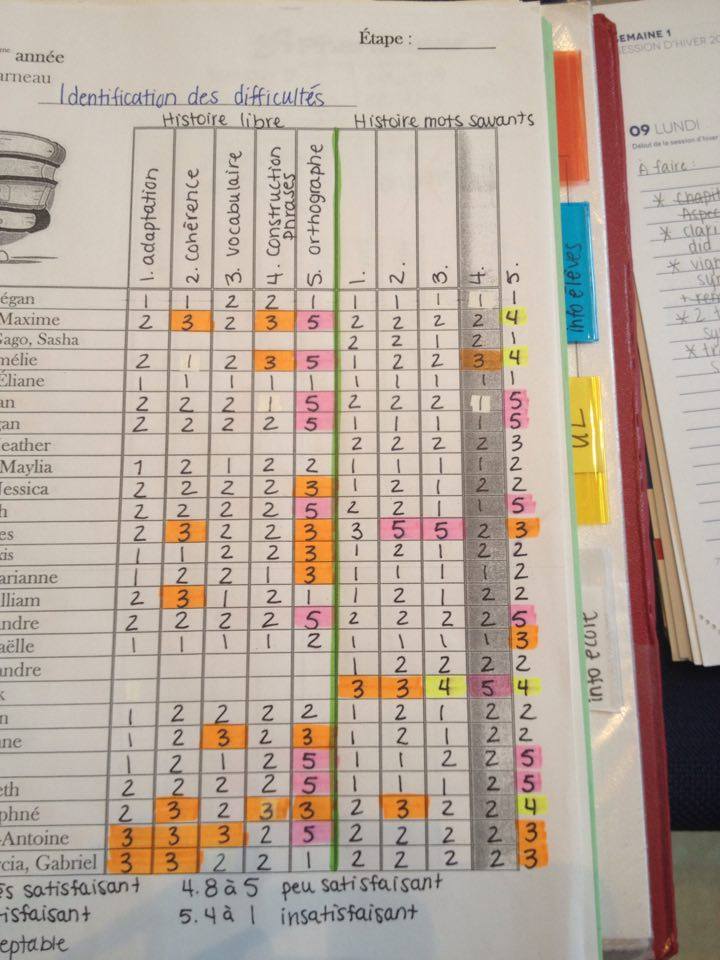 Étape :
année
arneau
Identification des difficultés
Histoire libre Histoire mots savants
1. adaptation 2. cohérence 3. vocabulaire 4. construction phrases 5. orthographe 1. 2. 3. 4. 5.
égan 1 1 2 2 1 1 1 1 1 1
Maxime 2 3 2 3 5 2 2 2 2 4
Gago, Sasha 2 2 1 2 1
mélie 2 1 2 3 5 1 2 2 3 4
Éliane 1 1 1 1 1 1 1 1 1 1
an 2 2 2 1 5 2 2 2 1 5
gan 2 2 2 2 5 1 1 1 1 5
eather 2 2 2 2 3
Maylia 1 2 1 2 2 1 1 1 1 2
Jessica 2 2 2 2 3 1 2 1 2 2
h 2 2 2 2 5 2 2 1 1 5
es 2 3 2 2 3 3 5 5 2 3
xis 1 1 2 2 3 1 2 1 2 2
arianne 1 2 2 1 3 1 1 1 1 2
lliam 2 3 1 2 1 1 2 1 2 2
andre 2 2 2 2 5 2 2 2 2 5
aëlle 1 1 1 1 2 1 1 1 1 3
andre 1 2 2 2 2
k 3 3 4 5 4
n 1 2 2 2 2 1 2 1 2 2
ne 1 2 3 2 3 1 2 1 2 2
1 2 1 2 5 1 1 2 2 5
eth 2 2 2 2 5 1 1 1 2 5
phné 2 3 2 3 3 2 3 2 2 4
-Antoine 3 3 3 2 5 2 2 2 2 3
rcia, Gabriel 3 3 2 2 1 2 2 2 2 3
ès satisfaisant 4. 8 à 5 peu satisfaisant
tisfaisant 5. 4 à 1 insatisfaisant
eptable
info élèves
UL
info école
SEMAINE 1
SESSION D'HIVER 20
09 LUNDI
Début de la session d'hiver
À faire :
* Chapit
Aspe
* clari
did
* vign
* 2